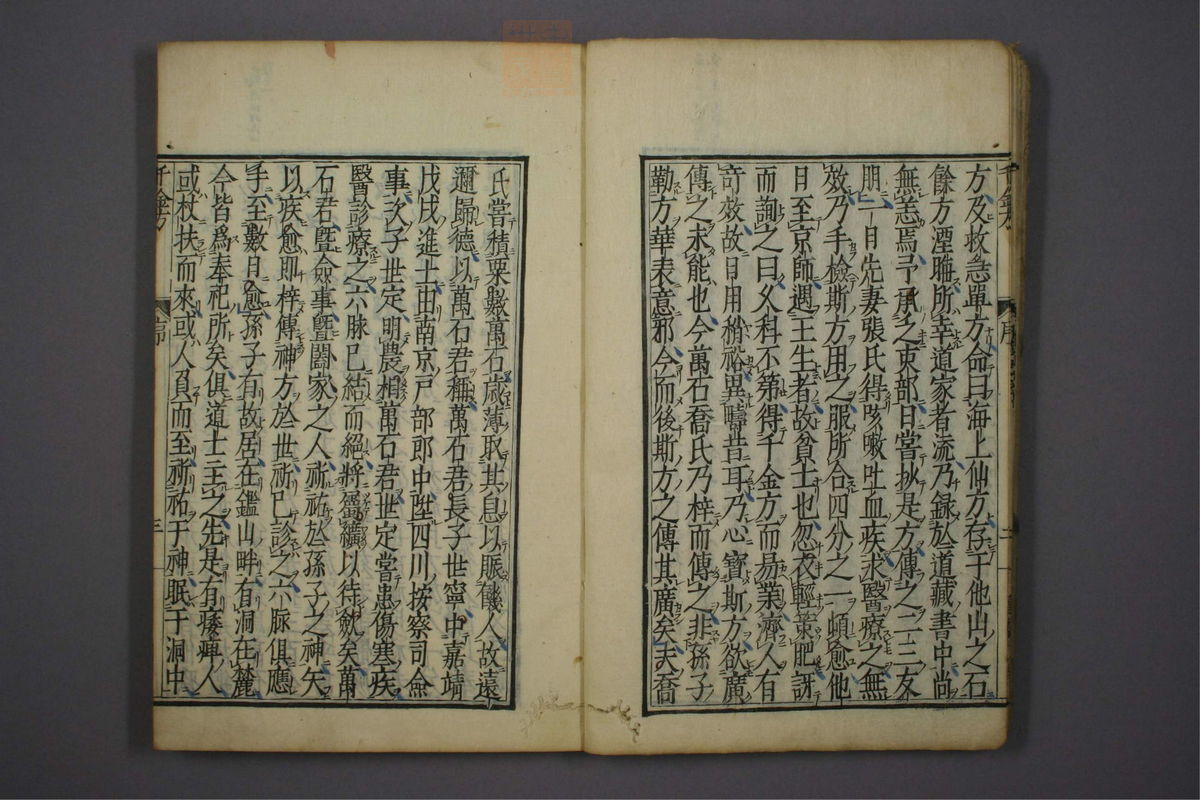 方及救急單方命曰海上仙方存于他山之石
餘方湮晦所幸道家者流乃録於道藏書中尚
無恙焉予承之吏部日嘗抄是方傳之二三友
朋一日先妻張氏得咳嗽吐血疾求醫療之無
效乃手檢斯方用之服所合四分之一頓愈他
日至京師遇王生者故貧士也忽衣輕策肥訝
而詢之曰久科不第待千金方而易業濟人有
竒效故日用稍裕異疇昔耳乃心寶斯方欲廣
傳之未能也今萬石喬氏乃梓而傳之非孫子
勒方華表意邪今而後斯方之傳其廣矣夫喬
千金方 序 二
氏嘗積粟數萬石歳薄取其息以賑饑人故遠
邇歸德以萬石君稱萬石君長子世寧中嘉靖
戊戌進士由南京戸部郎中陞四川按察司僉
事次子世定明農相萬石君世定嘗患傷寒疾
醫診療之六脉已結而絕將屬纊以待斂矣萬
石君曁僉事曁闔家之人祈祐於孫子之神矢
以疾愈即梓傳神方於世祈已診之六脈俱應
手至數日愈孫子有故居在鑑山畔有洞在麓
今皆爲奉祀所矣俱道士主之先是有痿痺人
或杖扶而來或人負而至祈祐于神眠于洞中
千金方 序 三